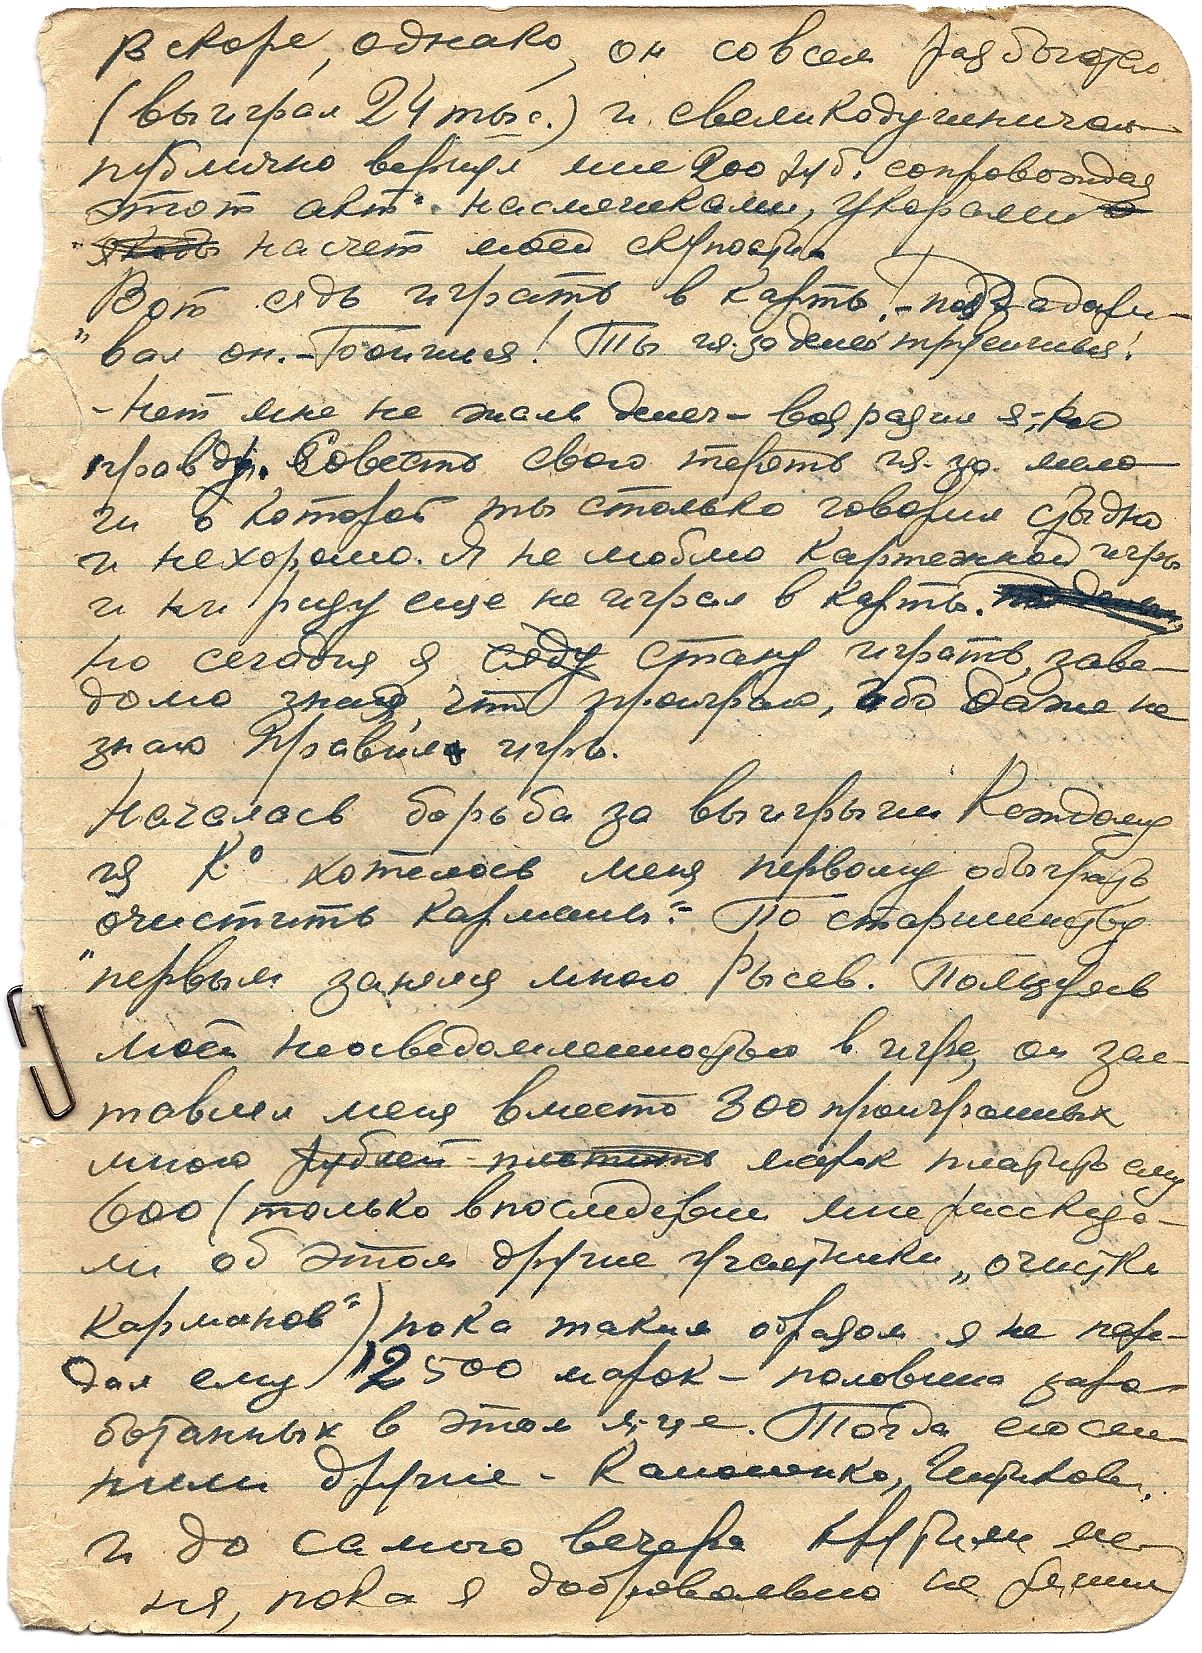 Вскоре, однако, он совсем разбогател
(выиграл 24 тыс.) и свеликодушничал
публично вернул мне 200 руб. сопровождая
этот акт" насмешками, укорами
насчет моей скупости.
Вот сядь играть в карты! - подзадори-
вал он. - Боишься! Ты из-за денег трясешься!
- Нет мне не жаль денег - возразил я, -
правду. Совесть свою терять из-за мело
чи о которой ты столько говорил стыдно
и нехорошо. Я не люблю картежной игры
и ни разу еще не играл в карты.
но сегодня я сяду стану играть, заве-
домо зная, что проиграю, ибо даже не
знаю правила игры.
Началась борьба за выигрыш Каждому
из К° хотелось меня первому обыграть
"очистить карманы" По старшинству
первым занялся мною Рысев. Пользуясь
моей неосведомленностью в игре, он зас-
тавлял меня вместо 300 проигранных
мною рублей платить марок платить ему
600 (только впоследствии мне рассказа-
ли об этом другие участники „очистки
карманов") пока таким образом я не пере-
дал ему 12500 марок - половина зара-
ботанных в этом м-це. Тогда его сме-
нили другие -
и до самого вечера крутили ме-
ня, пока я добровольно не